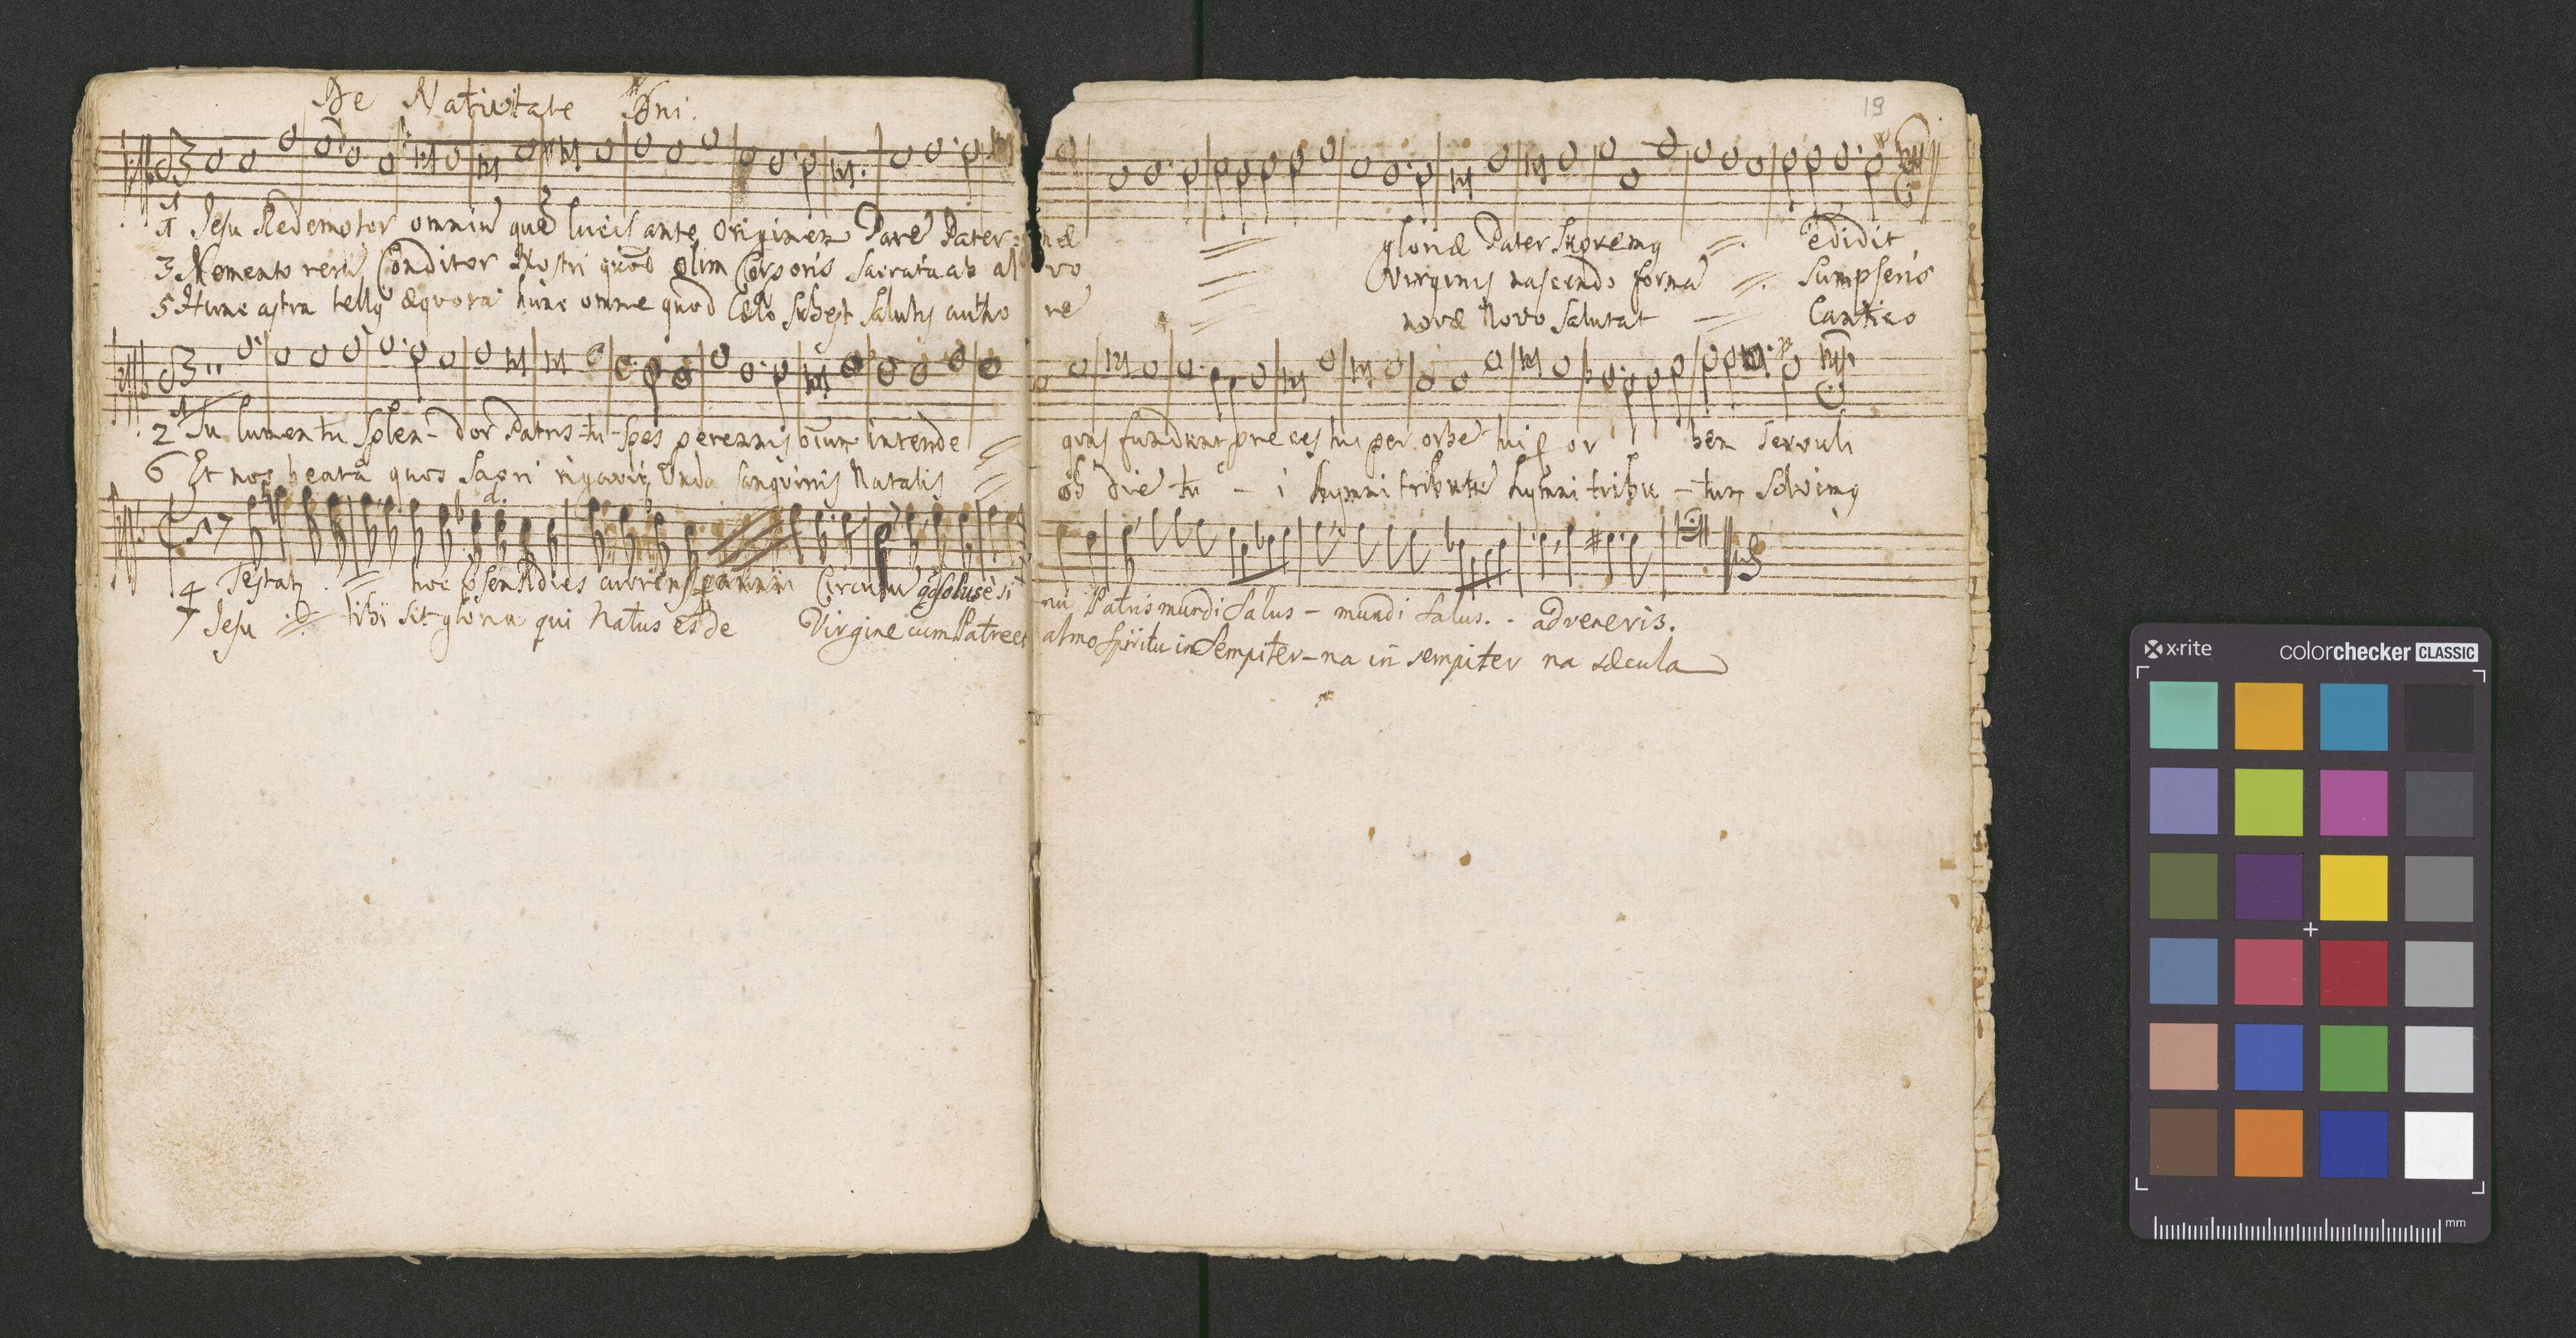 De Nativitate Dni.
19
1 Jesu Redemptor omniu quē lucis ante originem Parē Pater= næ = gloriæ Pater Supremg =. edidit
3 Memento reru Conditor Nostri quod olim Corporis Sacrata ab al vo = Virginis nascendo formā =. Sumpseris
5 Hunc astra tellg æquora hunc omne quod Cælo subest Salutis autho re = novæ Novo Salutat = Cantico
2 Tu lumen tu Splen- dor Patris tu Spes perennis oīum intende = quas fundunt preces tui per orbē tui p or bem servuli
6 Et nos beata quos Sacri rigavit Unda sanguinis Natalis = ob diē tu - i hymni tributū hymni tribu - tum Solvimg
4 Testatr = hoc psens dies currens p anni Circulū qd solus è si nu Patris mundi Salus - mundi Salus. - adveneris.
7 Jesu = tibi sit gloria qui Natus es de Virgine cum Patre et almo Spiritu in Sempiter-na in sempiter na sæcula
x·rite colorchecker CLASSIC
mm